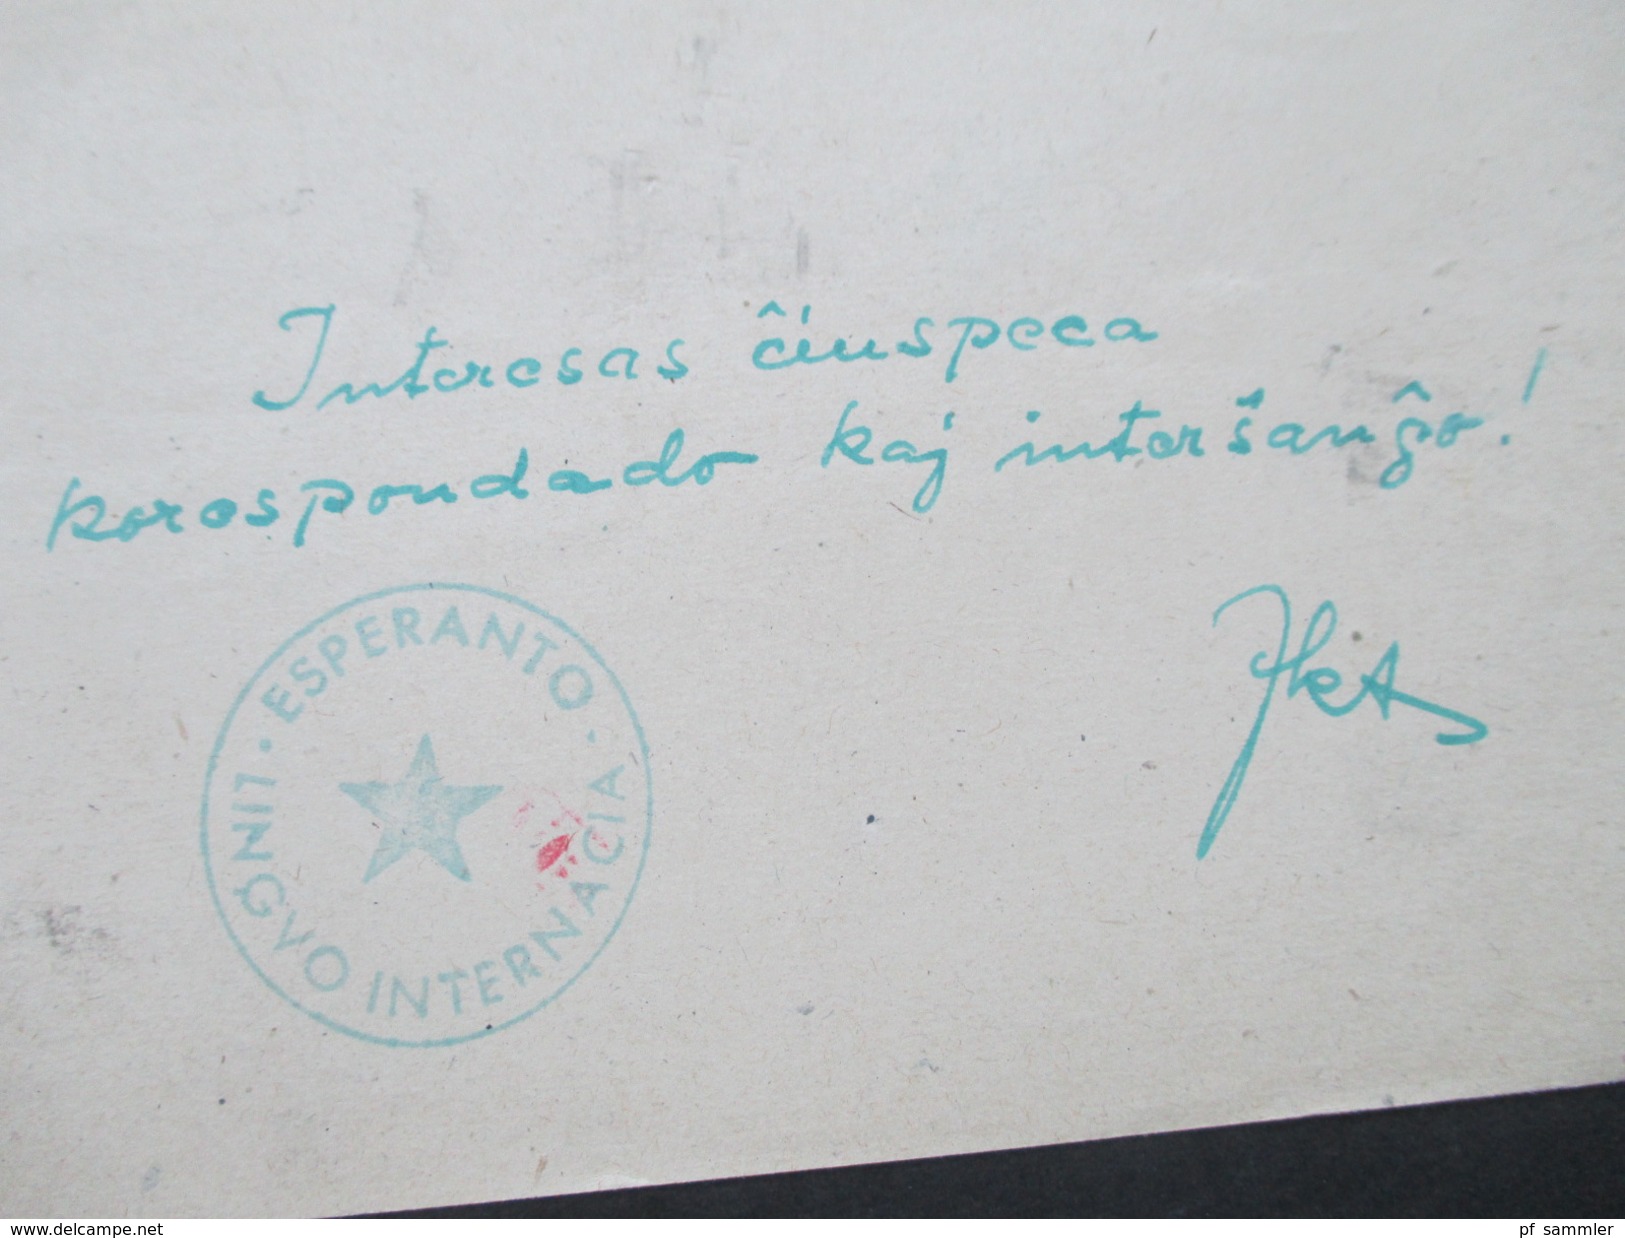 Interesas ĉiuspeca
korespondado kaj interŝanĝo!
· ESPERANTO ·
LINGVO INTERNACIA
www.delcampe.net
pf_sammler